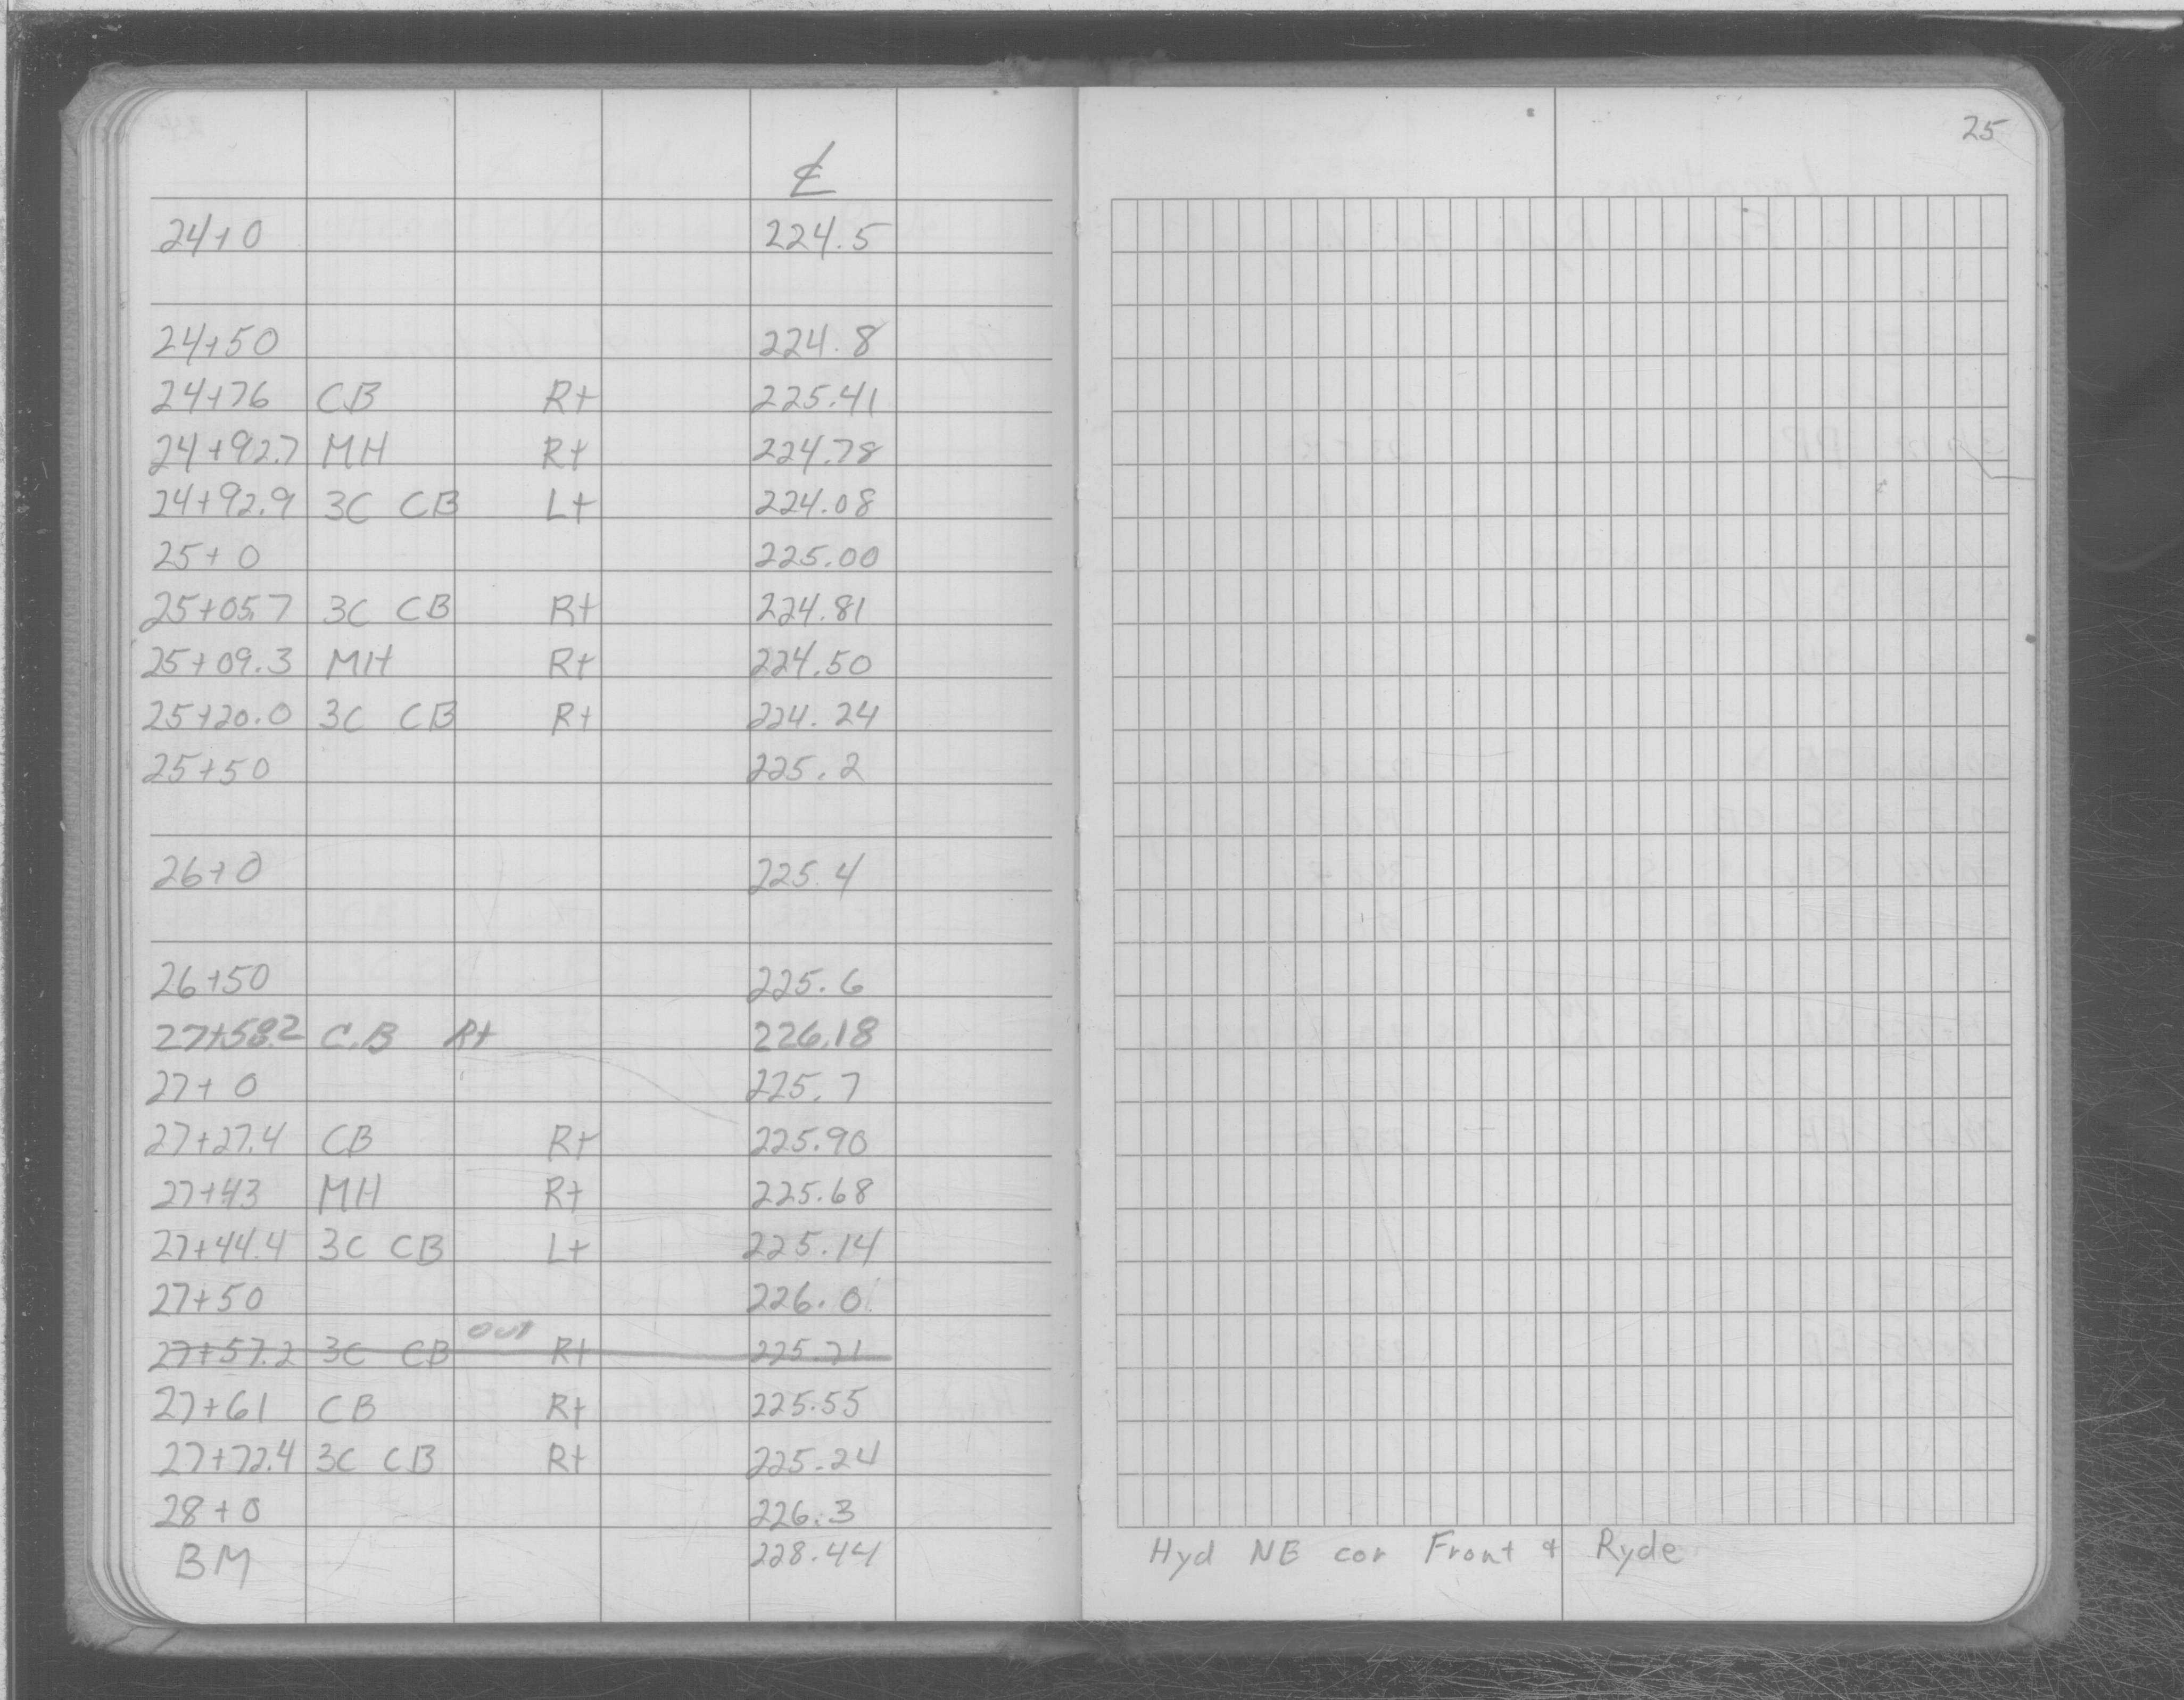 25
℄
24+0 224.5
24+50 224.8
24+76 CB Rt 225.41
24+92.7 MH Rt 224.78
24+92.9 3C CB Lt 224.08
25+0 225.00
25+05.7 3C CB Rt 224.81
25+09.3 MH Rt 224.50
25+20.0 3C CB Rt 224.24
25+50 225.2
26+0 225.4
26+50 225.6
27+58.2 C.B Rt 226.18
27+0 225.7
27+27.4 CB Rt 225.90
27+43 MH Rt 225.68
27+44.4 3C CB Lt 225.14
27+50 226.0
out
27+57.2 3C CB Rt 225.71
27+61 CB Rt 225.55
27+72.4 3C CB Rt 225.24
28+0 226.3
BM 228.44 Hyd NE cor Front & Ryde